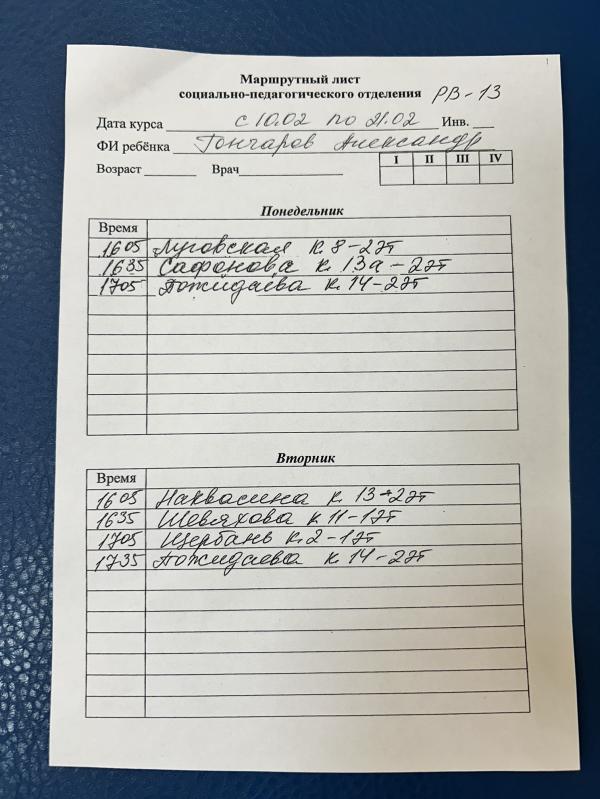 Маршрутный лист
социально-педагогического отделения РВ-13
Дата курса с 10.02 по 21.02 Инв.
ФИ ребёнка Гончаров Александр
Возраст Врач I II III IV
Понедельник
Время
1605 Луговская к. 8-2эт
1635 Сафонова к. 13а-2эт
1705 Пожидаева к. 14-2эт
Вторник
Время
1605 Нахвасина к. 13-2эт
1635 Шевяхова к 11-1эт
1705 Щербань к. 2-1эт
1735 Пожидаева к. 14-2эт